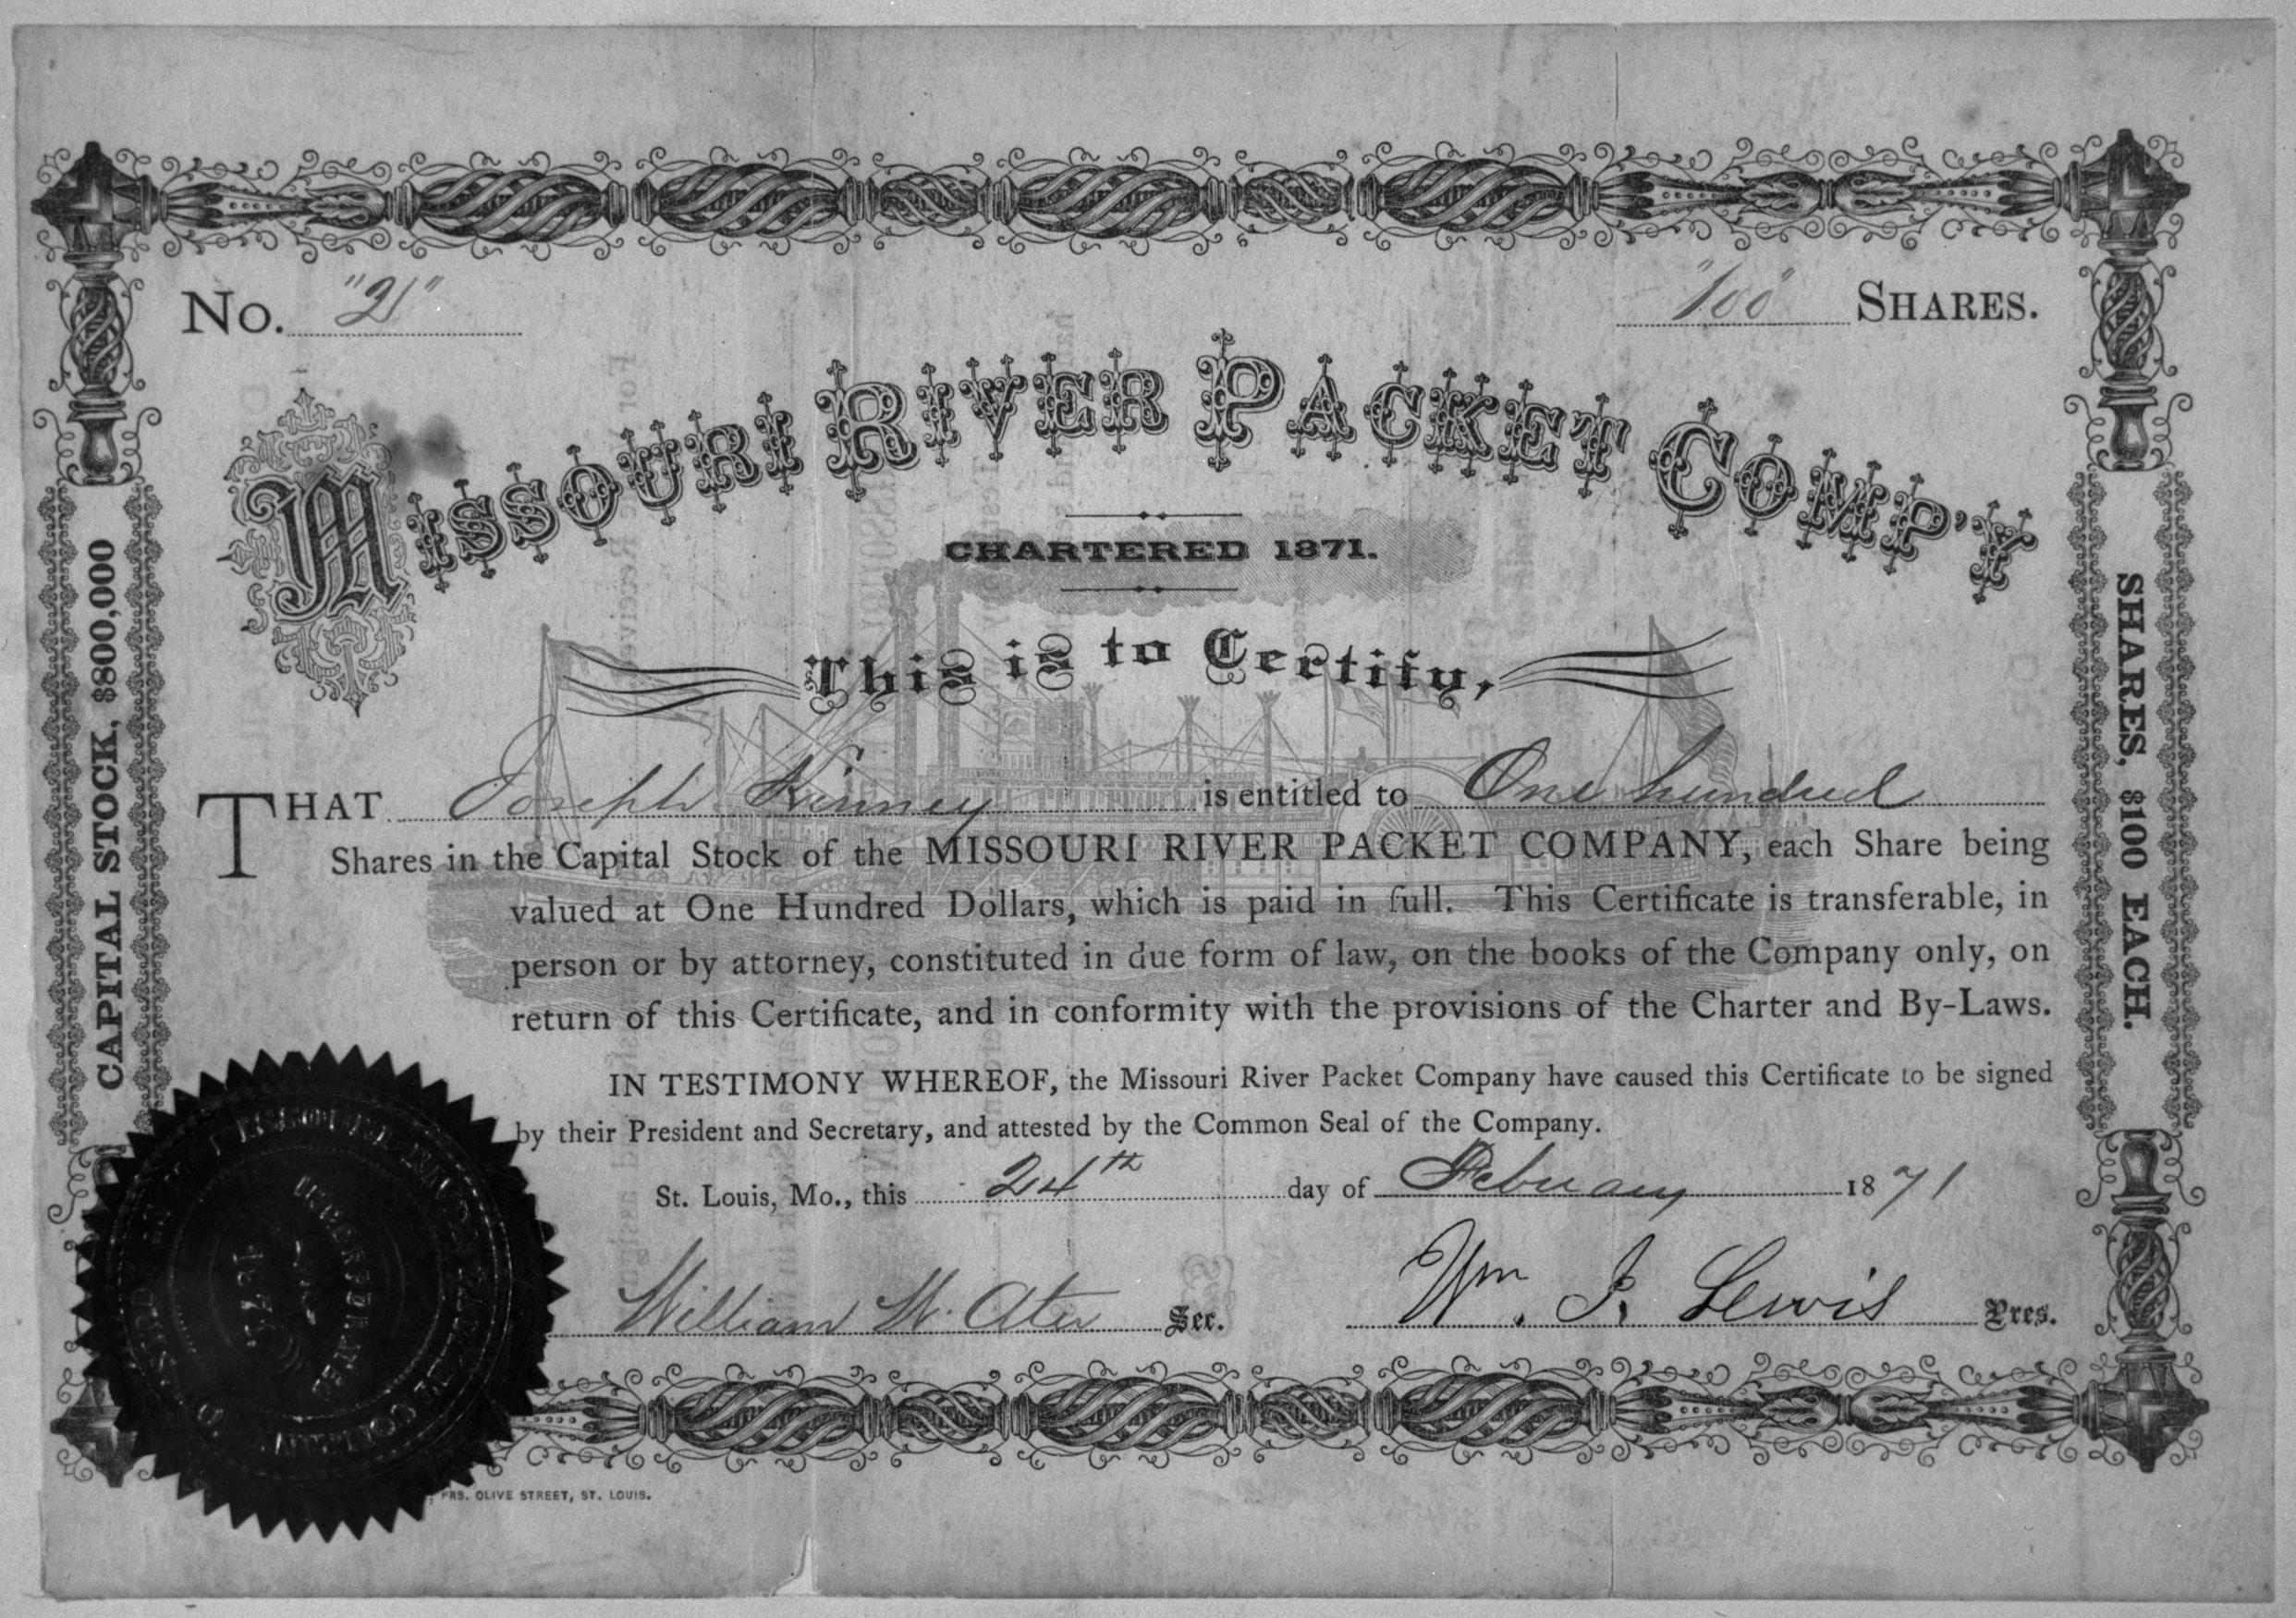 No. "21"
"100" SHARES.
MISSOURI RIVER PACKET COMP'Y
CHARTERED 1871.
This is to Certify,
THAT Joseph Kinney is entitled to One hundred
Shares in the Capital Stock of the MISSOURI RIVER PACKET COMPANY, each Share being
valued at One Hundred Dollars, which is paid in full. This Certificate is transferable, in
person or by attorney, constituted in due form of law, on the books of the Company only, on
return of this Certificate, and in conformity with the provisions of the Charter and By-Laws.
IN TESTIMONY WHEREOF, the Missouri River Packet Company have caused this Certificate to be signed
by their President and Secretary, and attested by the Common Seal of the Company.
St. Louis, Mo., this 24th day of February 1871
William W. Ater Sec.
Wm. J. Lewis Pres.
CAPITAL STOCK, $800,000
SHARES, $100 EACH.
PRS. OLIVE STREET, ST. LOUIS.
MISSOURI RIVER PACKET COMPANY
1871